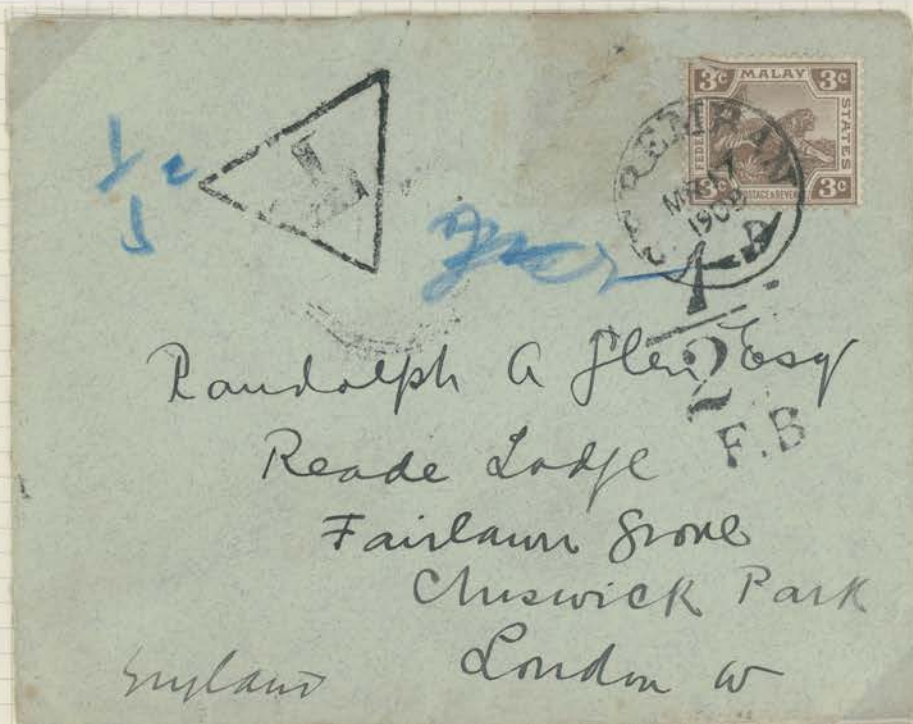 3c MALAY 3c
FEDERATED STATES
3c POSTAGE & REVENUE 3c
SEREMBAN
17
1909
T
1
2 D
F.B
Randolph A Glen Esq
Reade Lodge
Fairlawn Grove
Chiswick Park
London W
England